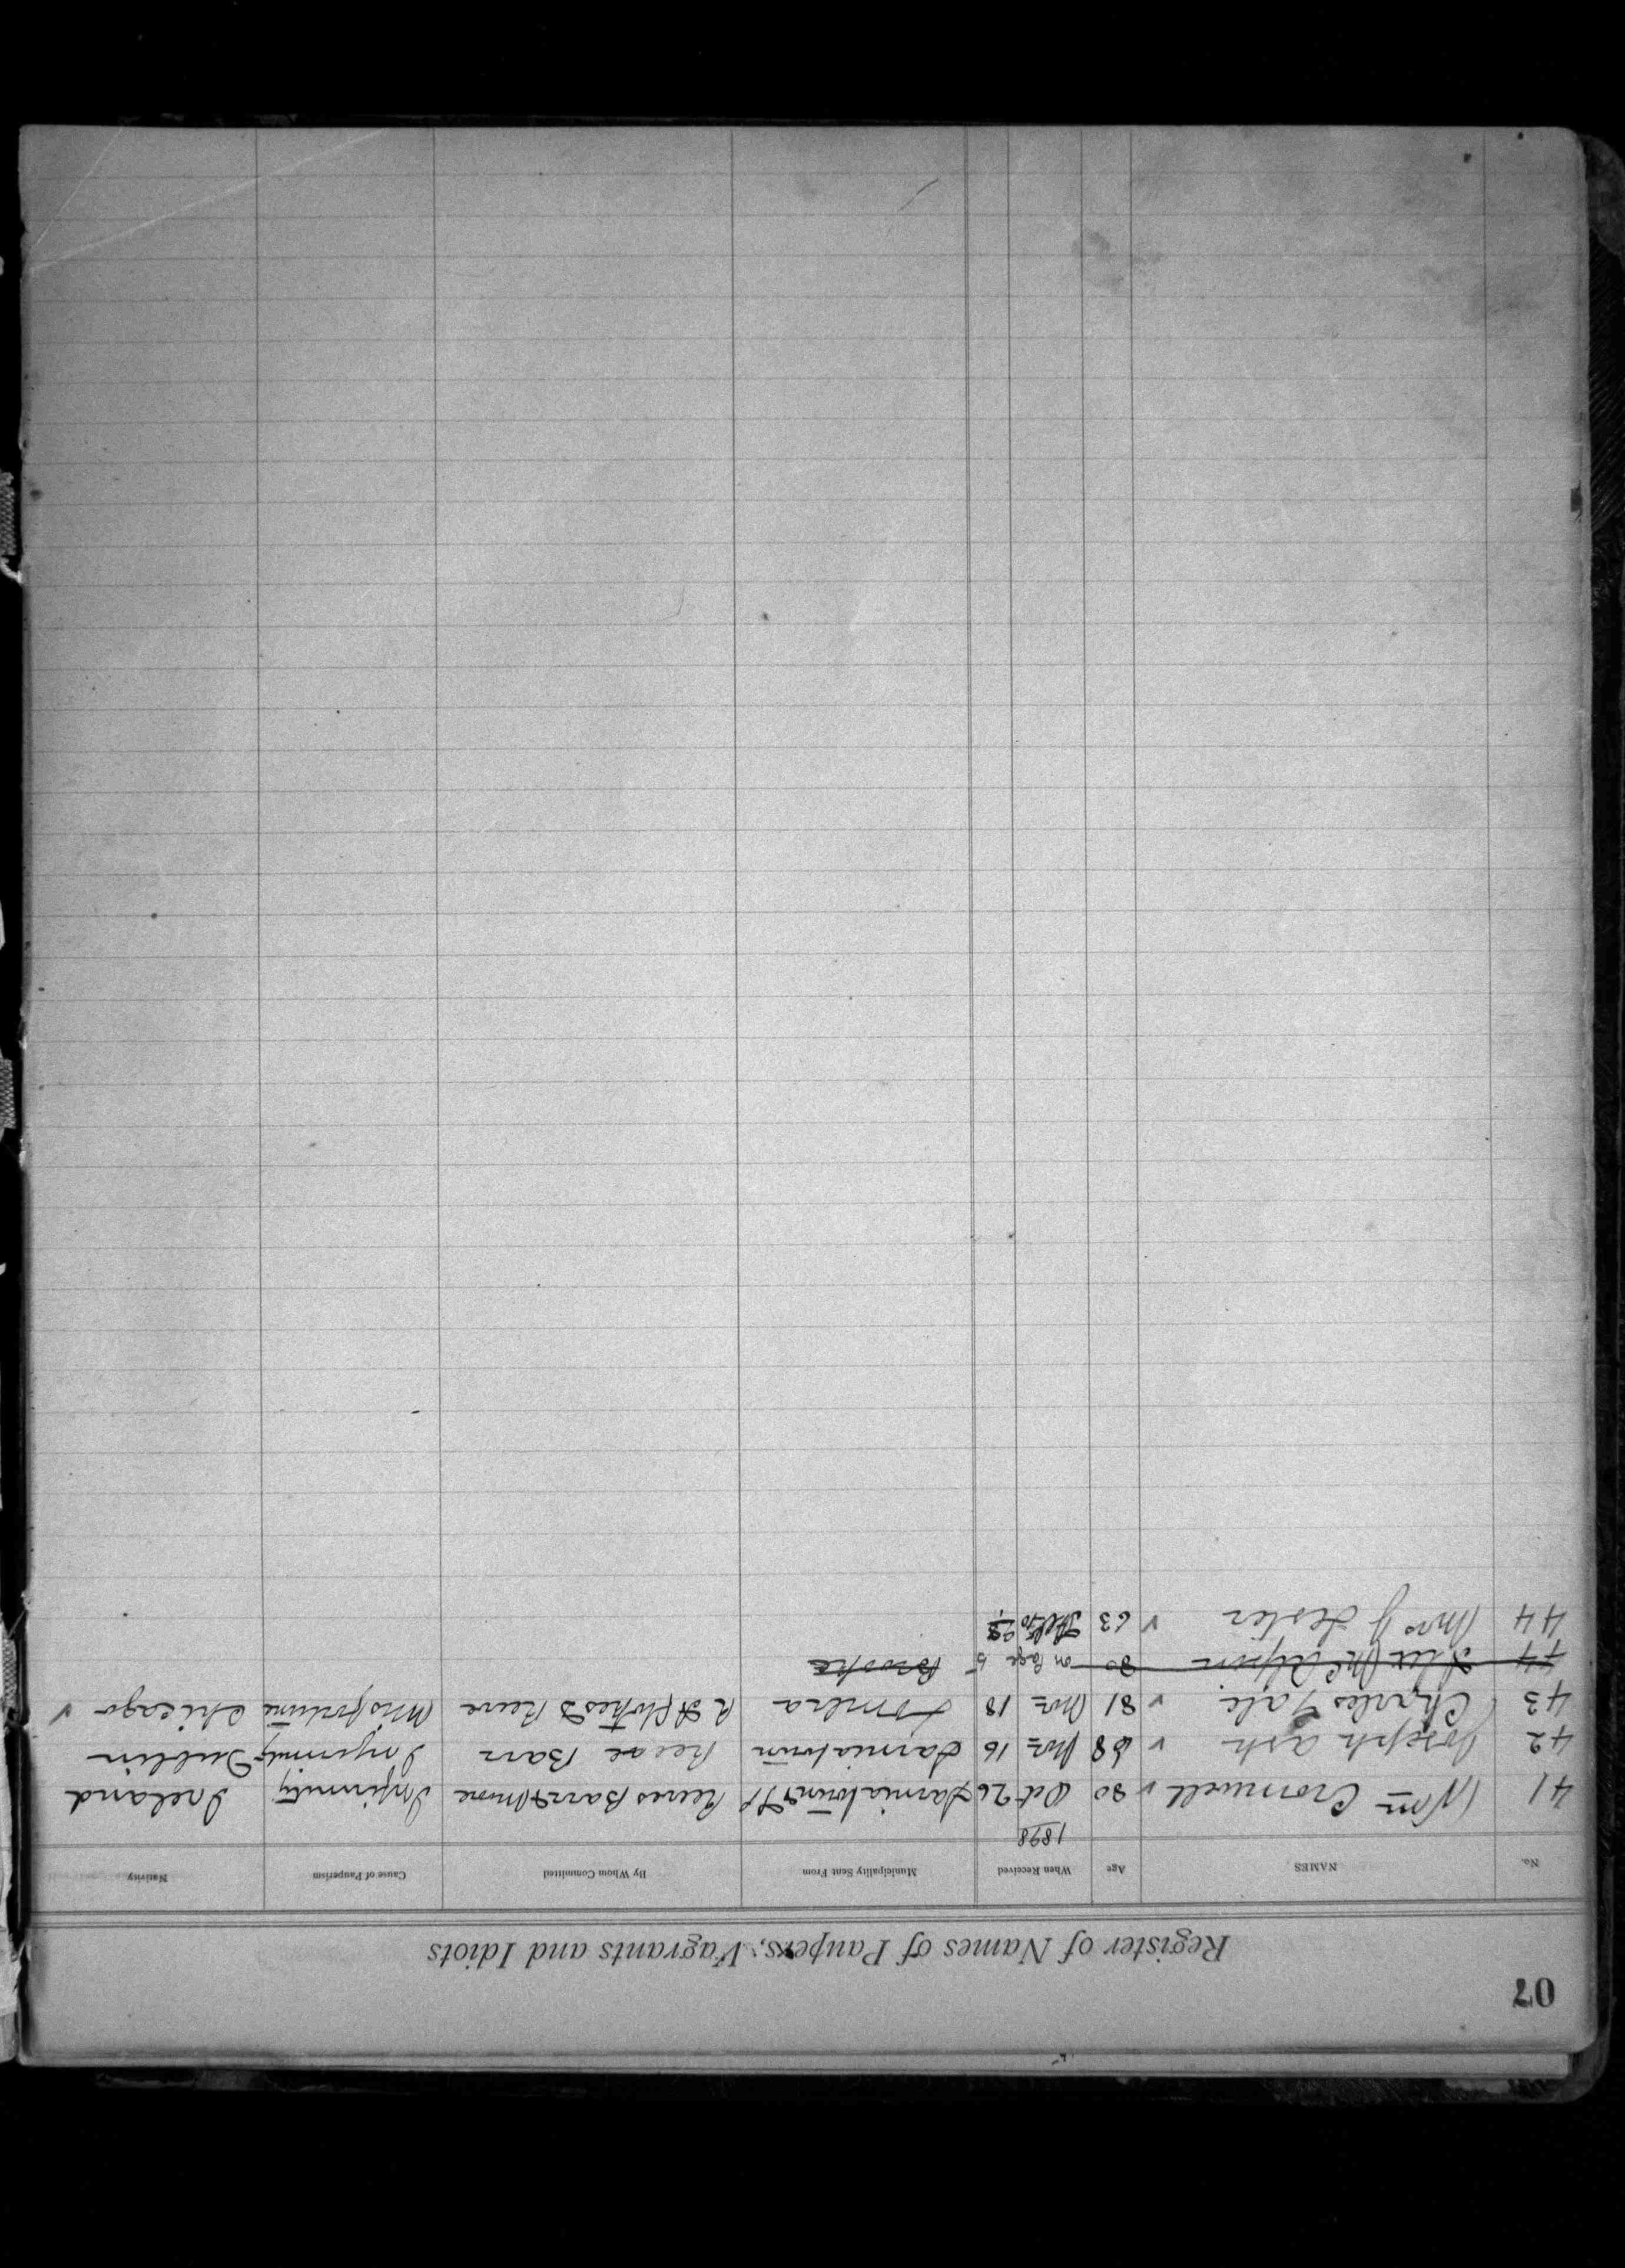 07
Register of Names of Paupers, Vagrants and Idiots
No. NAMES Age When Received Municipality Sent From By Whom Committed Cause of Pauperism Nativity
1898
41 Wm Cromwell 80 Oct 26 Sarnia Town & Reeves Barr & Infirmity Ireland
42 Joseph Ash 68 Nov 16 Sarnia Town Reeve Barr Infirmity Dublin
43 Charles Yale 81 Nov 18 Sombra Reeve Misfortune Chicago
44 Alex Mc 80 on Page 5 Brooke
44 Mrs J Lester 63